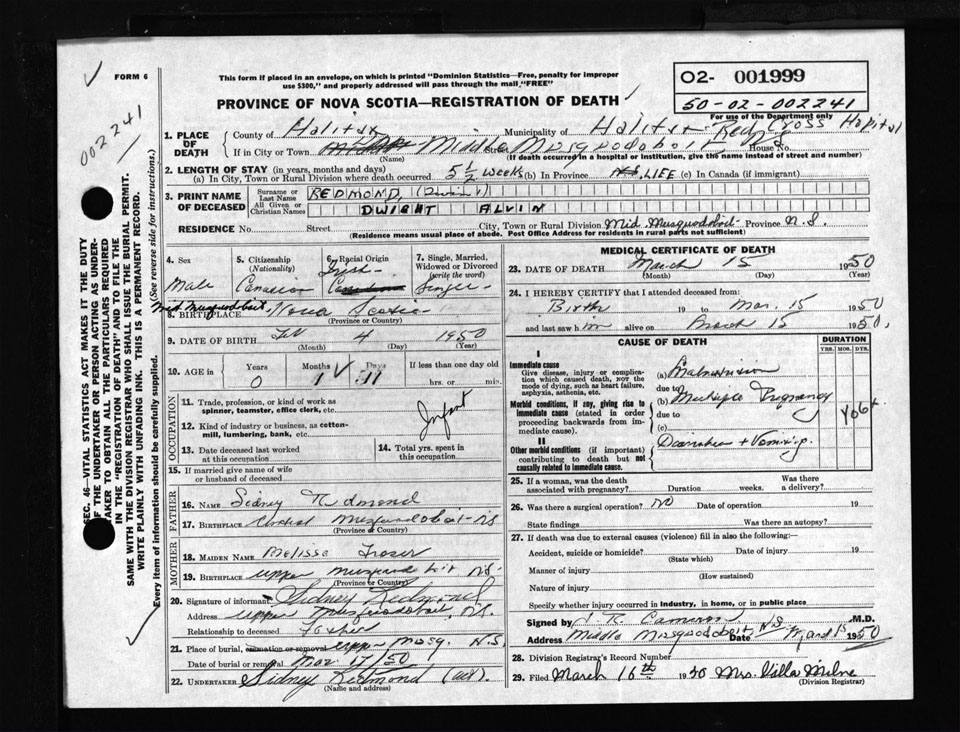 FORM 6
This form if placed in an envelope, on which is printed "Dominion Statistics—Free, penalty for improper
use $300," and properly addressed will pass through the mail "FREE"
O2- 001999
50-02-002241
For use of the Department only
002241
PROVINCE OF NOVA SCOTIA—REGISTRATION OF DEATH
1. PLACE OF DEATH
County of Halifax Municipality of Halifax Red Cross Hospital
If in City or Town Middle Musquodoboit Street House No.
(Name) (If death occurred in a hospital or institution, give the name instead of street and number)
2. LENGTH OF STAY (in years, months and days)
(a) In City, Town or Rural Division where death occurred 5 1/2 weeks (b) In Province LIFE (c) In Canada (if immigrant)
3. PRINT NAME OF DECEASED
Surname or Last Name REDMOND, (Dwight)
All Given or Christian Names DWIGHT ALVIN
RESIDENCE No. Street City, Town or Rural Division Mid. Musquodoboit Province N.S.
(Residence means usual place of abode. Post Office Address for residents in rural parts not sufficient)
4. Sex Male
5. Citizenship (Nationality) Canadian
6. Racial Origin Irish
7. Single, Married, Widowed or Divorced (write the word) Single
8. BIRTHPLACE Mid Musquodoboit Nova Scotia
(Province or Country)
9. DATE OF BIRTH Feb 4 1950
(Month) (Day) (Year)
10. AGE in Years 0 Months 1 Days 11 If less than one day old
hrs. or min.
OCCUPATION
11. Trade, profession, or kind of work as spinner, teamster, office clerk, etc. Infant
12. Kind of industry or business, as cotton-mill, lumbering, bank, etc.
13. Date deceased last worked at this occupation
14. Total yrs. spent in this occupation
15. If married give name of wife or husband of deceased
FATHER
16. NAME Sidney Redmond
17. BIRTHPLACE Musquodoboit NS
(Province or Country)
MOTHER
18. MAIDEN NAME Melissa Frazer
19. BIRTHPLACE Upper Musquodoboit N.S.
(Province or Country)
20. Signature of informant Sidney Redmond
Address Upper Musquodoboit, N.S.
Relationship to deceased Father
21. Place of burial, cremation or removal Upp Musq. N.S
Date of burial or removal Mar 17/50
22. UNDERTAKER Sidney Redmond
(Name and address)
MEDICAL CERTIFICATE OF DEATH
23. DATE OF DEATH March 15 1950
(Month) (Day) (Year)
24. I HEREBY CERTIFY that I attended deceased from:
Birth 19 to Mar. 15 1950
and last saw him alive on March 15 1950,
CAUSE OF DEATH
DURATION
YRS. MOS. DYS.
I
Immediate cause
Give disease, injury or complication which caused death, not the mode of dying, such as heart failure, asphyxia, asthenia, etc.
(a) Malnutrition
due to
Morbid conditions, if any, giving rise to immediate cause (stated in order proceeding backwards from immediate cause).
(b) Multiple Pregnancy
due to
(c)
II
Other morbid conditions (if important) contributing to death but not causally related to immediate cause.
Diarrhea + Vomiting.
25. If a woman, was the death associated with pregnancy? Duration weeks. Was there a delivery?
26. Was there a surgical operation? NO Date of operation 19
State findings Was there an autopsy?
27. If death was due to external causes (violence) fill in also the following:—
Accident, suicide or homicide? Date of injury 19
(State which)
Manner of injury
(How sustained)
Nature of injury
Specify whether injury occurred in industry, in home, or in public place
Signed by M.D.
Address Middle Musquodoboit N.S. Date 1950
28. Division Registrar's Record Number
29. Filed March 16th 1950 Mrs. Villa Milne
(Division Registrar)
SEC. 46—VITAL STATISTICS ACT MAKES IT THE DUTY
OF THE UNDERTAKER OR PERSON ACTING AS UNDERTAKER TO OBTAIN ALL THE PARTICULARS REQUIRED
IN THE "REGISTRATION OF DEATH" AND TO FILE THE
SAME WITH THE DIVISION REGISTRAR WHO SHALL ISSUE THE BURIAL PERMIT.
WRITE PLAINLY WITH UNFADING INK. THIS IS A PERMANENT RECORD.
Every item of information should be carefully supplied. (See reverse side for instructions.)